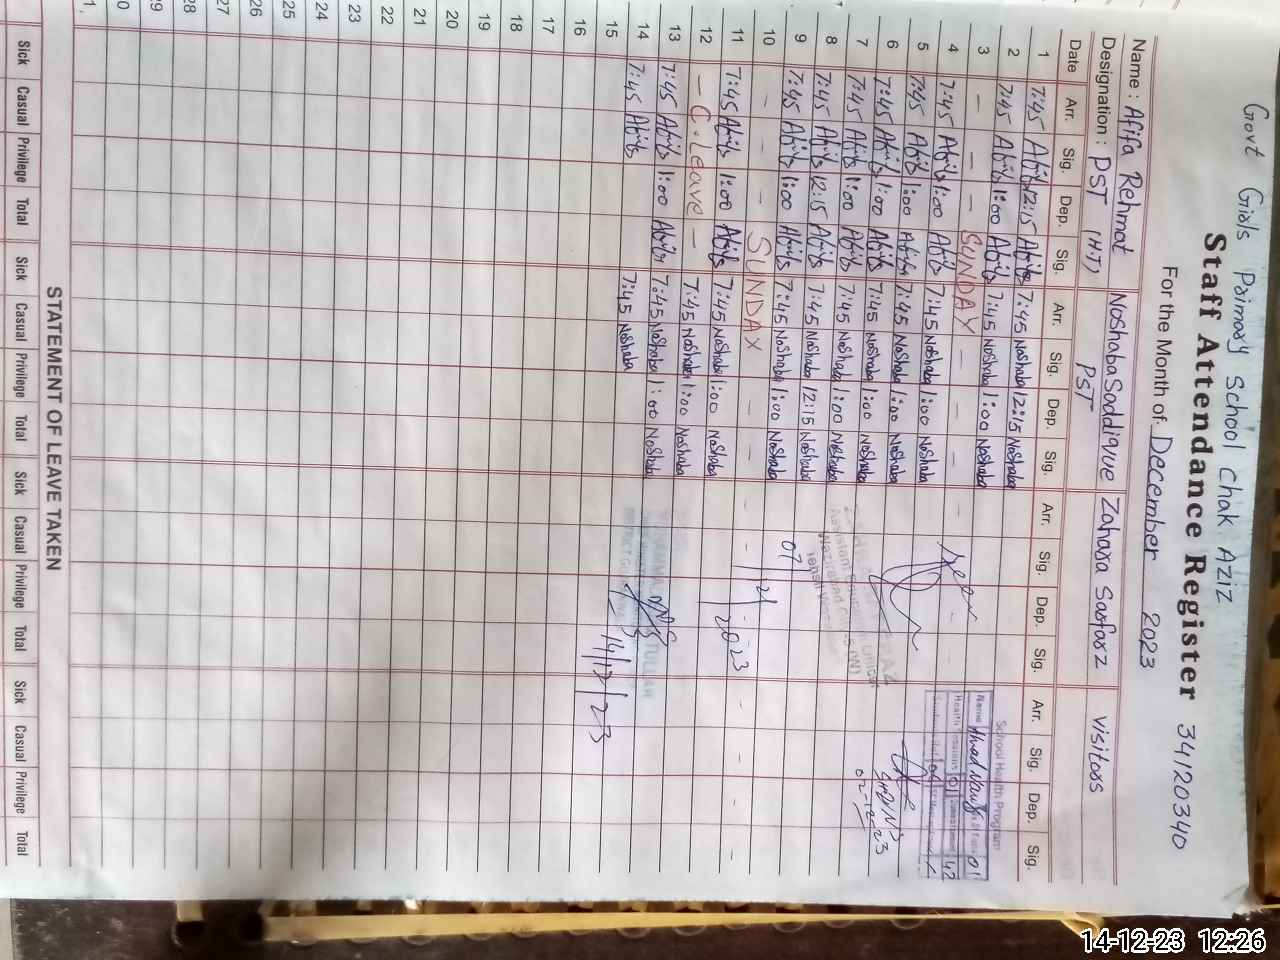 Govt Girls Primary School Chak Aziz
Staff Attendance Register 34120340
For the Month of December 2023
Name : Afifa Rehmat Noshaba Saddique Zahara Sarfarz Visitors
Designation : PST (H.T) PST
Date Arr. Sig. Dep. Sig. Arr. Sig. Dep. Sig. Arr. Sig. Dep. Sig. Arr. Sig. Dep. Sig.
1 7:45 Afifa 12:15 Afifa 7:45 Noshaba 12:15 Noshaba
2 7:45 Afifa 1:00 Afifa 7:45 Noshaba 1:00 Noshaba School Health Program
3 - - - SUNDAY - - - - Name
4 7:45 Afifa 1:00 Afifa 7:45 Noshaba 1:00 Noshaba
5 7:45 Afifa 1:00 Afifa 7:45 Noshaba 1:00 Noshaba
6 7:45 Afifa 1:00 Afifa 7:45 Noshaba 1:00 Noshaba
7 7:45 Afifa 1:00 Afifa 7:45 Noshaba 1:00 Noshaba
8 7:45 Afifa 12:15 Afifa 7:45 Noshaba 12:15 Noshaba
9 7:45 Afifa 1:00 Afifa 7:45 Noshaba 1:00 Noshaba 07
10 - - - SUNDAY - - - -
11 7:45 Afifa 1:00 Afifa 7:45 Noshaba 1:00 Noshaba 2023
12 - C. Leave - 7:45 Noshaba 1:00 Noshaba
13 7:45 Afifa 1:00 Afifa 7:45 Noshaba 1:00 Noshaba
14 7:45 Afifa 7:45 Noshaba
15 14/12/23
16
17
18
19
20
21
22
23
24
25
26
27
28
29
STATEMENT OF LEAVE TAKEN
Sick Casual Privilege Total Sick Casual Privilege Total Sick Casual Privilege Total Sick Casual Privilege Total
14-12-23 12:26